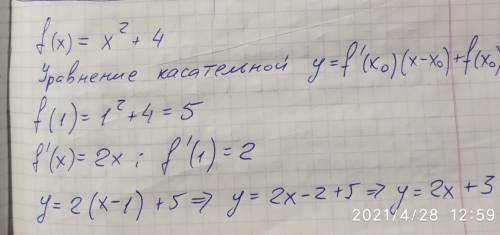 f(x) = x² + 4
Уравнение касательной y=f'(x₀)(x-x₀)+f(x₀)
f(1) = 1² + 4 = 5
f'(x) = 2x ; f'(1) = 2
y = 2(x-1) + 5 ⇒ y = 2x - 2 + 5 ⇒ y = 2x + 3
2021/4/28 12:59